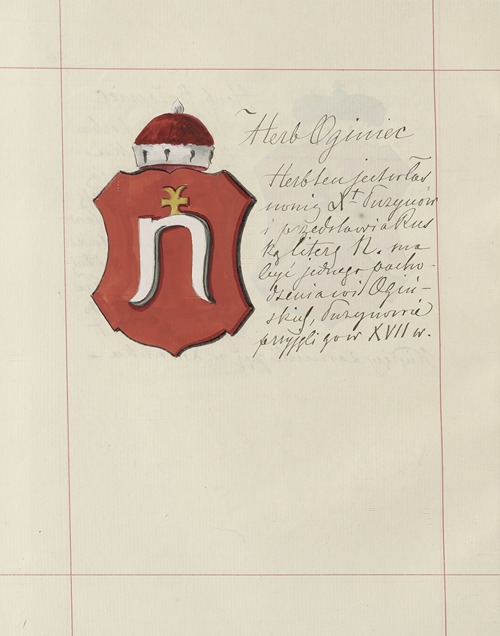 Herb Oginiec
Herb ten jest włas
nością Xt Puzynów
i przedstawia Rus
ką literę N. ma
być jednego pocho-
dzenia co i Ogiń-
skich, Puzynowie
przyjęli go w XVII w.